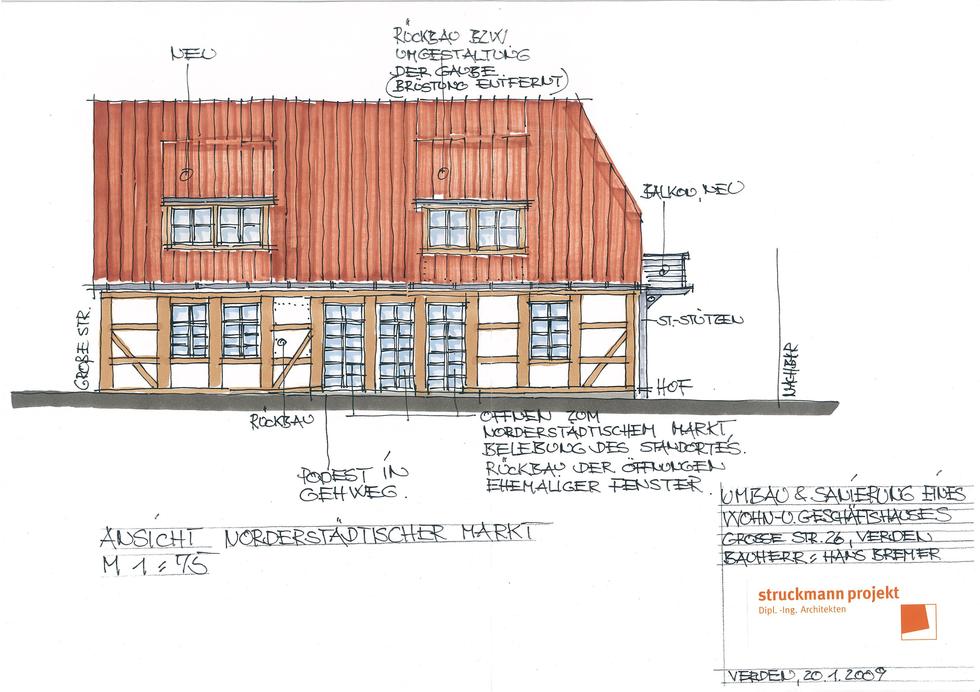 NEU
RÜCKBAU BZW.
UMGESTALTUNG
DER GAUBE.
(BRÜSTUNG ENTFERNT)
BALKON, NEU
ST.-STÜTZEN
GROßE STR.
HOF
NACHBAR
RÜCKBAU
ÖFFNEN ZUM
NORDERSTÄDTISCHEM MARKT,
BELEBUNG DES STANDORTES.
RÜCKBAU DER ÖFFNUNGEN
EHEMALIGER FENSTER.
PODEST IN
GEHWEG.
ANSICHT NORDERSTÄDTISCHER MARKT
M 1:75
UMBAU & SANIERUNG EINES
WOHN-U. GESCHÄFTSHAUSES
GROSSE STR. 26, VERDEN
BAUHERR: HANS BREMER
struckmann projekt
Dipl. -Ing. Architekten
VERDEN, 20.1.2009